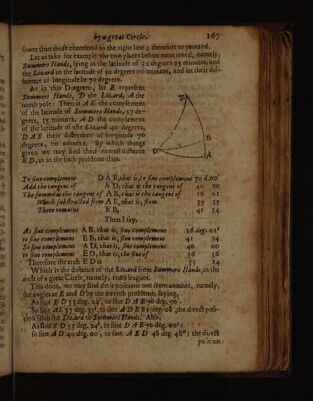 by a great Circle. 167
fewer than those contained in the right line; therefore to proceed.
Let us take for example the two places before mentioned, namely,
Summers Ilands, lying in the latitude of 32 degrees 25 minutes, and
the Lizard in the latitude of 50 degrees 00 minutes, and let their dif-
ference of longitude be 70 degrees.
As in this Diagram, let E represent
Summers Ilands, D the Lizard, A the
north pole: Then is A E the complement
of the latitude of Summers Ilands, 57 de-
grees, 35 minutes, A D the complement
of the latitude of the Lizard 40 degrees,
D A E their difference of longitude 70
degrees, 00 minutes. By which things
given we may find their neerest distance
E D, as in the sixth probleme thus.
A
B
D
E
To sine complement D A B, that is, to sine complement 70 d. 00'
Add the tangent of A D, that is the tangent of 40 00
The summe is the tangent of A B, that is the tangent of 16 01
Which substracted from A E, that is, from 57 35
There remains E B, 41 34
Then I say,
As sine complement A B, that is, sine complement 16 deg. 01'
to sine complement E B, that is, sine complement 41 34
So sine complement A D, that is, sine complement 40 00
to sine complement E D, that is, the sine of 36 36
Therefore the arch E D is 53 24
Which is the distance of the Lizard from Summers Ilands, in the
arch of a great Circle, namely, leagues.
This done, we may find their positions one from another, namely,
the angles at E and D by the seventh probleme, saying,
As sine E D 53 deg. 24', to sine D A E 70 deg. 00',
So sine A E 57 deg. 35', to sine A D E 81 deg. 08', the direct posi-
tion from the Lizard to Summers Ilands. Also,
As sine E D 53 deg. 24', to sine D A E 70 deg. 00';
so sine A D 40 deg. 00', to sine A E D 48 deg. 48': the direct
position